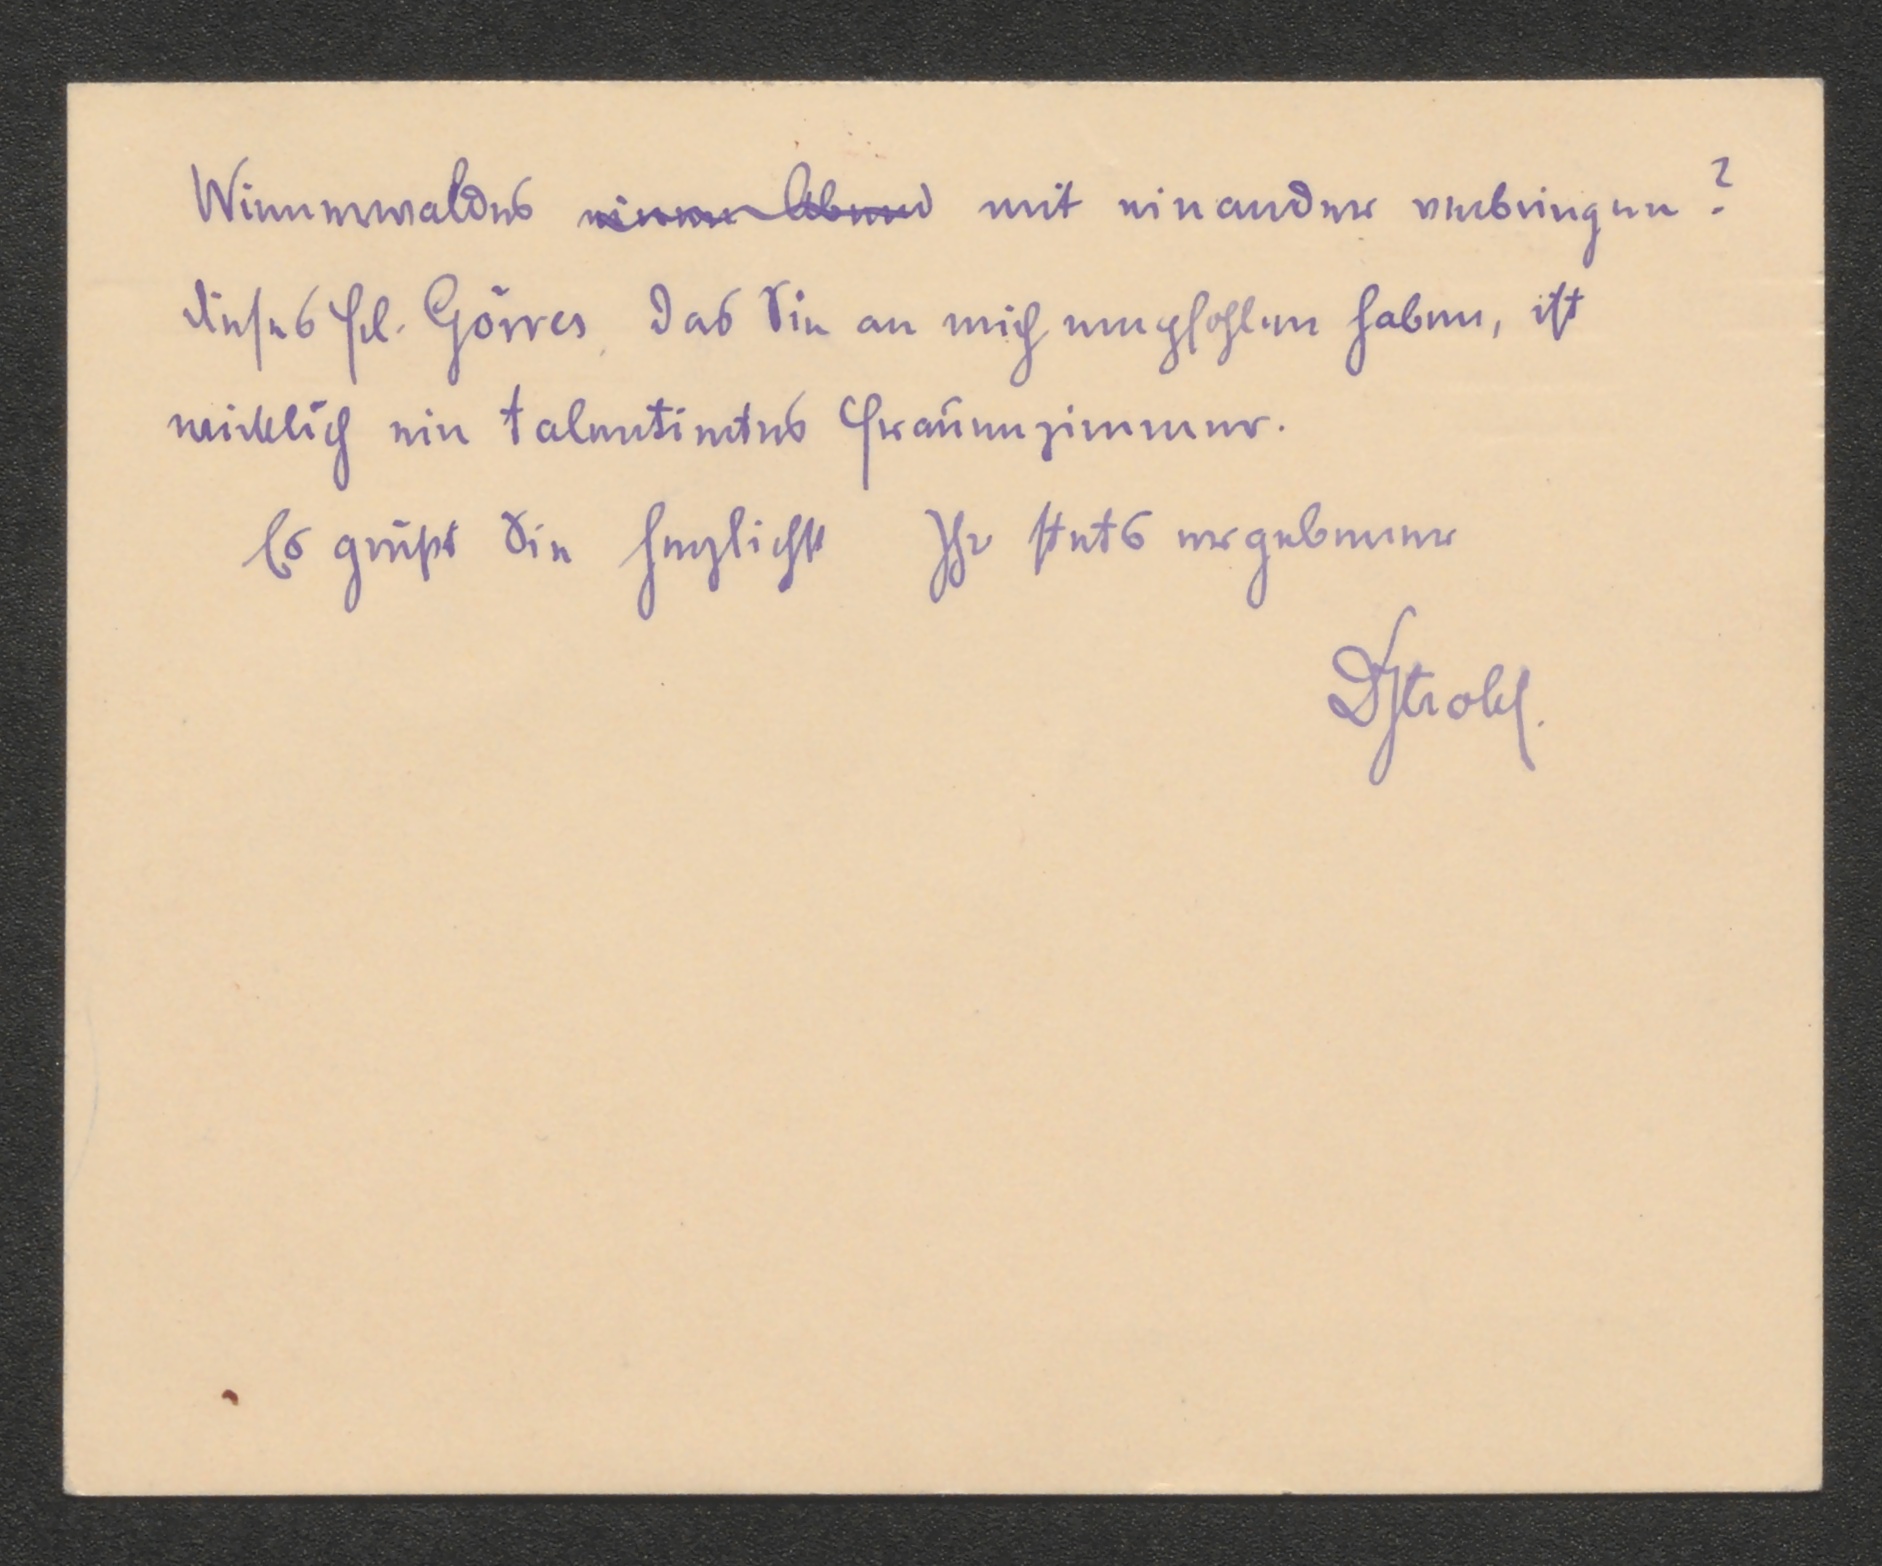 Wienerwaldes einen Abend mit einander verbringen?
Dieses Frl. Görres, das Sie an mich empfohlen haben, ist
wirklich ein talentiertes Frauenzimmer.
Es grüßt Sie herzlichst Ihr stets ergebener
DStrobl.